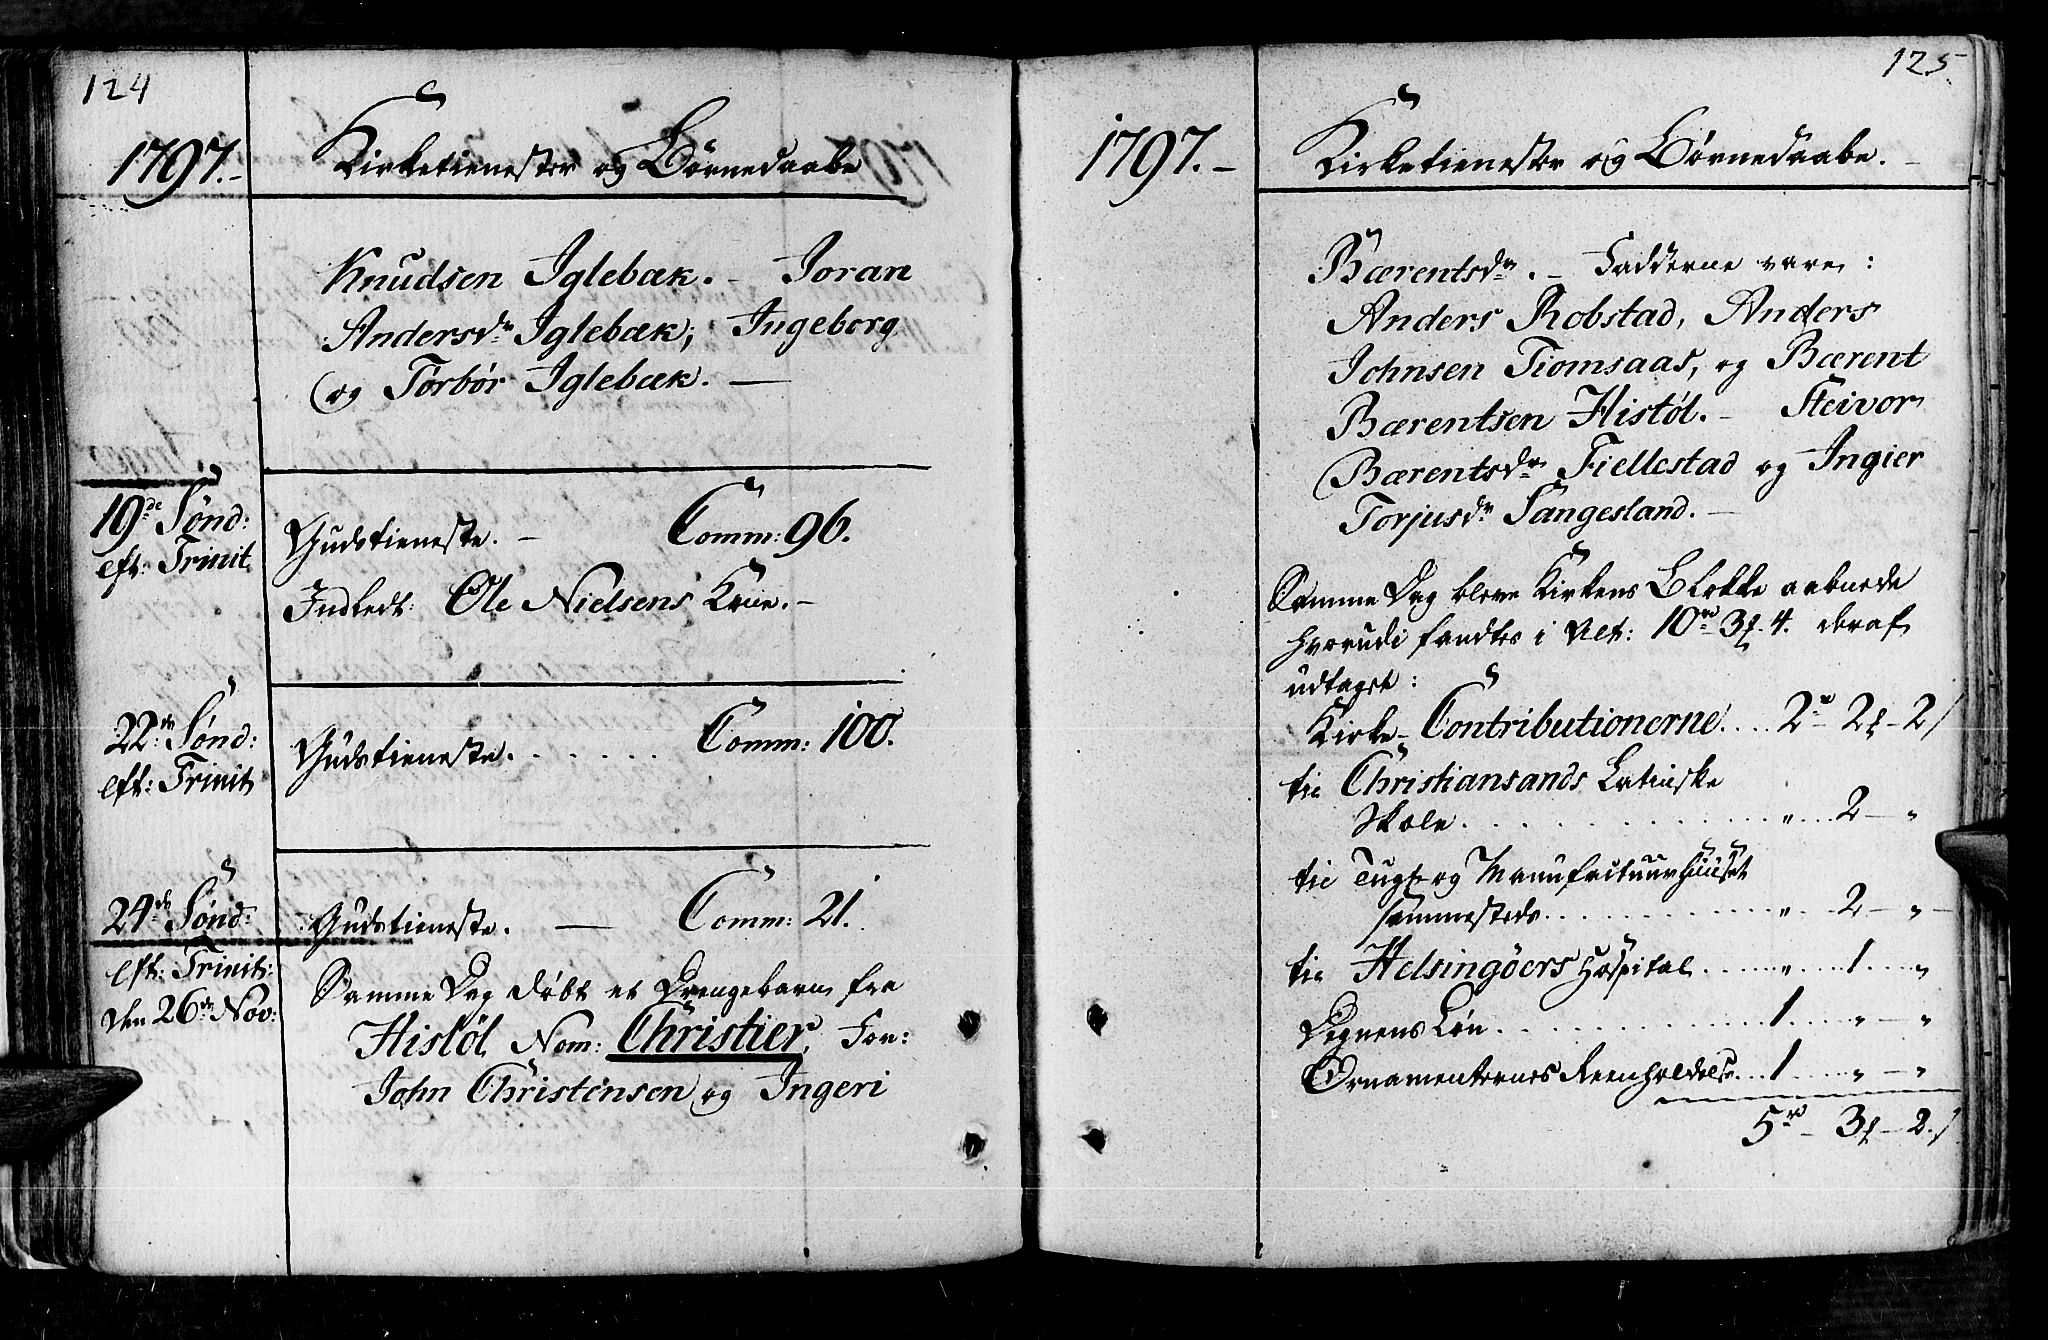 124
1797.-
Kirketienester og Børnedaabe
Knudsen Iglebæk. - Joran
Andersdr Iglebæk, Ingeborg
og Torbør Iglebæk. -
19de Sønd:
eft: Trinit
Gudstieneste. - Comm: 96.
Indledt: Ole Nielsens Kone. -
22de Sønd:
eft: Trinit
Gudstieneste. . . . . . Comm: 100.
24de Sønd:
eft: Trinit:
den 26de Nov:
Gudstieneste. - Comm: 21.
Samme Dag døbt et Drengebarn fra
Histøl, Nom: Christier, For:
John Christensen og Ingeri
125
1797. -
Kirketienester og Børnedaabe. -
Bærentsdr. - Fadderne vare:
Anders Robstad, Anders
Johnsen Tiomsaas, og Bærent
Bærentsen Histøl. - Steivor
Bærentsdr Fiellestad og Ingier
Torjusdr Sangesland. -
Samme Dag bleve Kirkens Blokke aabnede
hvorudi fandtes i Alt: 10rd 3f 4. deraf
udtaget:
Kirke-Contributionerne. . . . 2rd 2f - 2s
til Christiansands Latinske
Skole. . . . . . . . . . . . . " . . . 2 - "
til Tugt og Manufactuurhuuset
sammesteds. . . . . . . . . . . . " . . . 2 - " -
til Helsingöers Hospital. . . . . " . . . 1 . . . "
Degnens Løn. . . . . . . . . . . . 1 . . . . " - "
Ornamenternes Reenholdelse. . . 1 . . . . " - "
5rd - 3f - 2.s